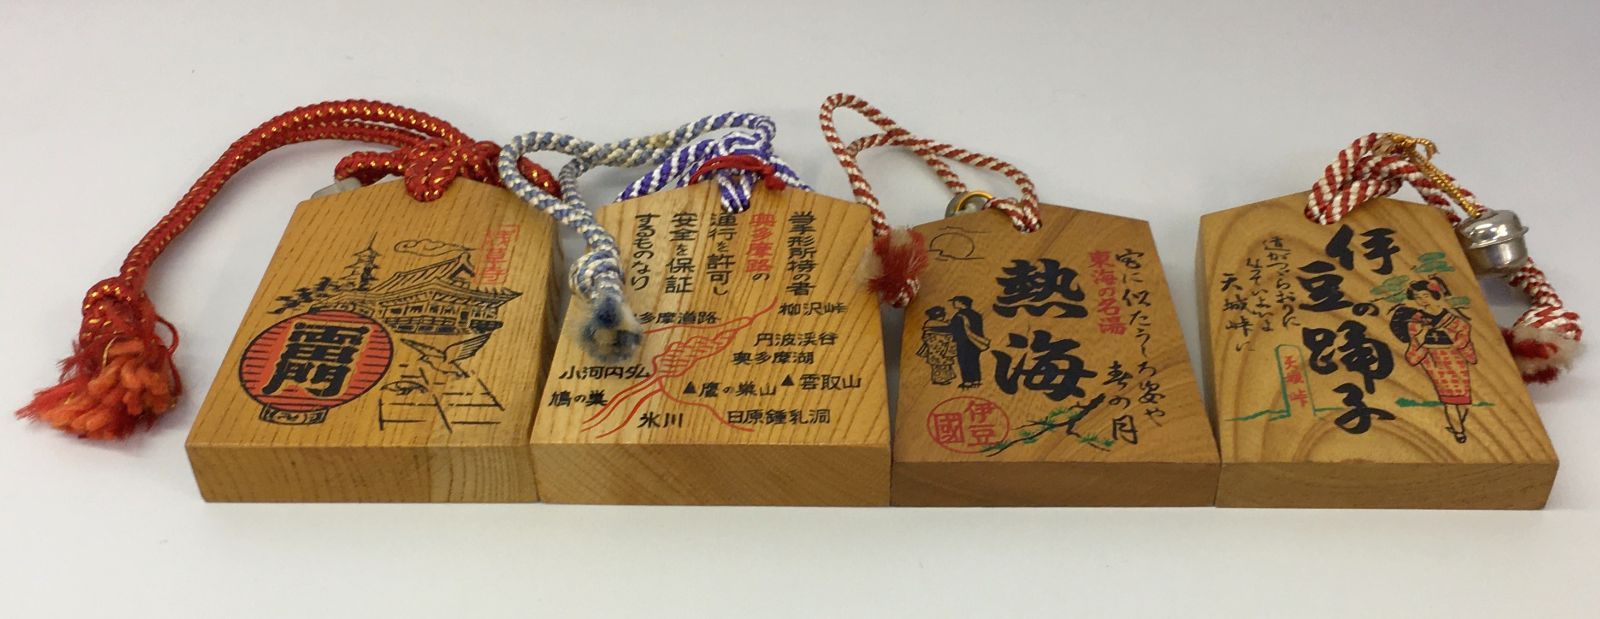 浅草寺
雷門
当手形所持の者
奥多摩路の
通行を許可し
安全を保証
するものなり
柳沢峠
多摩道路
丹波渓谷
奥多摩湖
小河内ダム
▲雲取山
▲鷹の巣山
鳩の巣
氷川
日原鍾乳洞
宮に似たうしろ姿や
春の月
東海の名湯
熱海
伊豆
國
伊豆の踊子
道がつづらおりに
なっていよいよ
天城峠に
天城峠